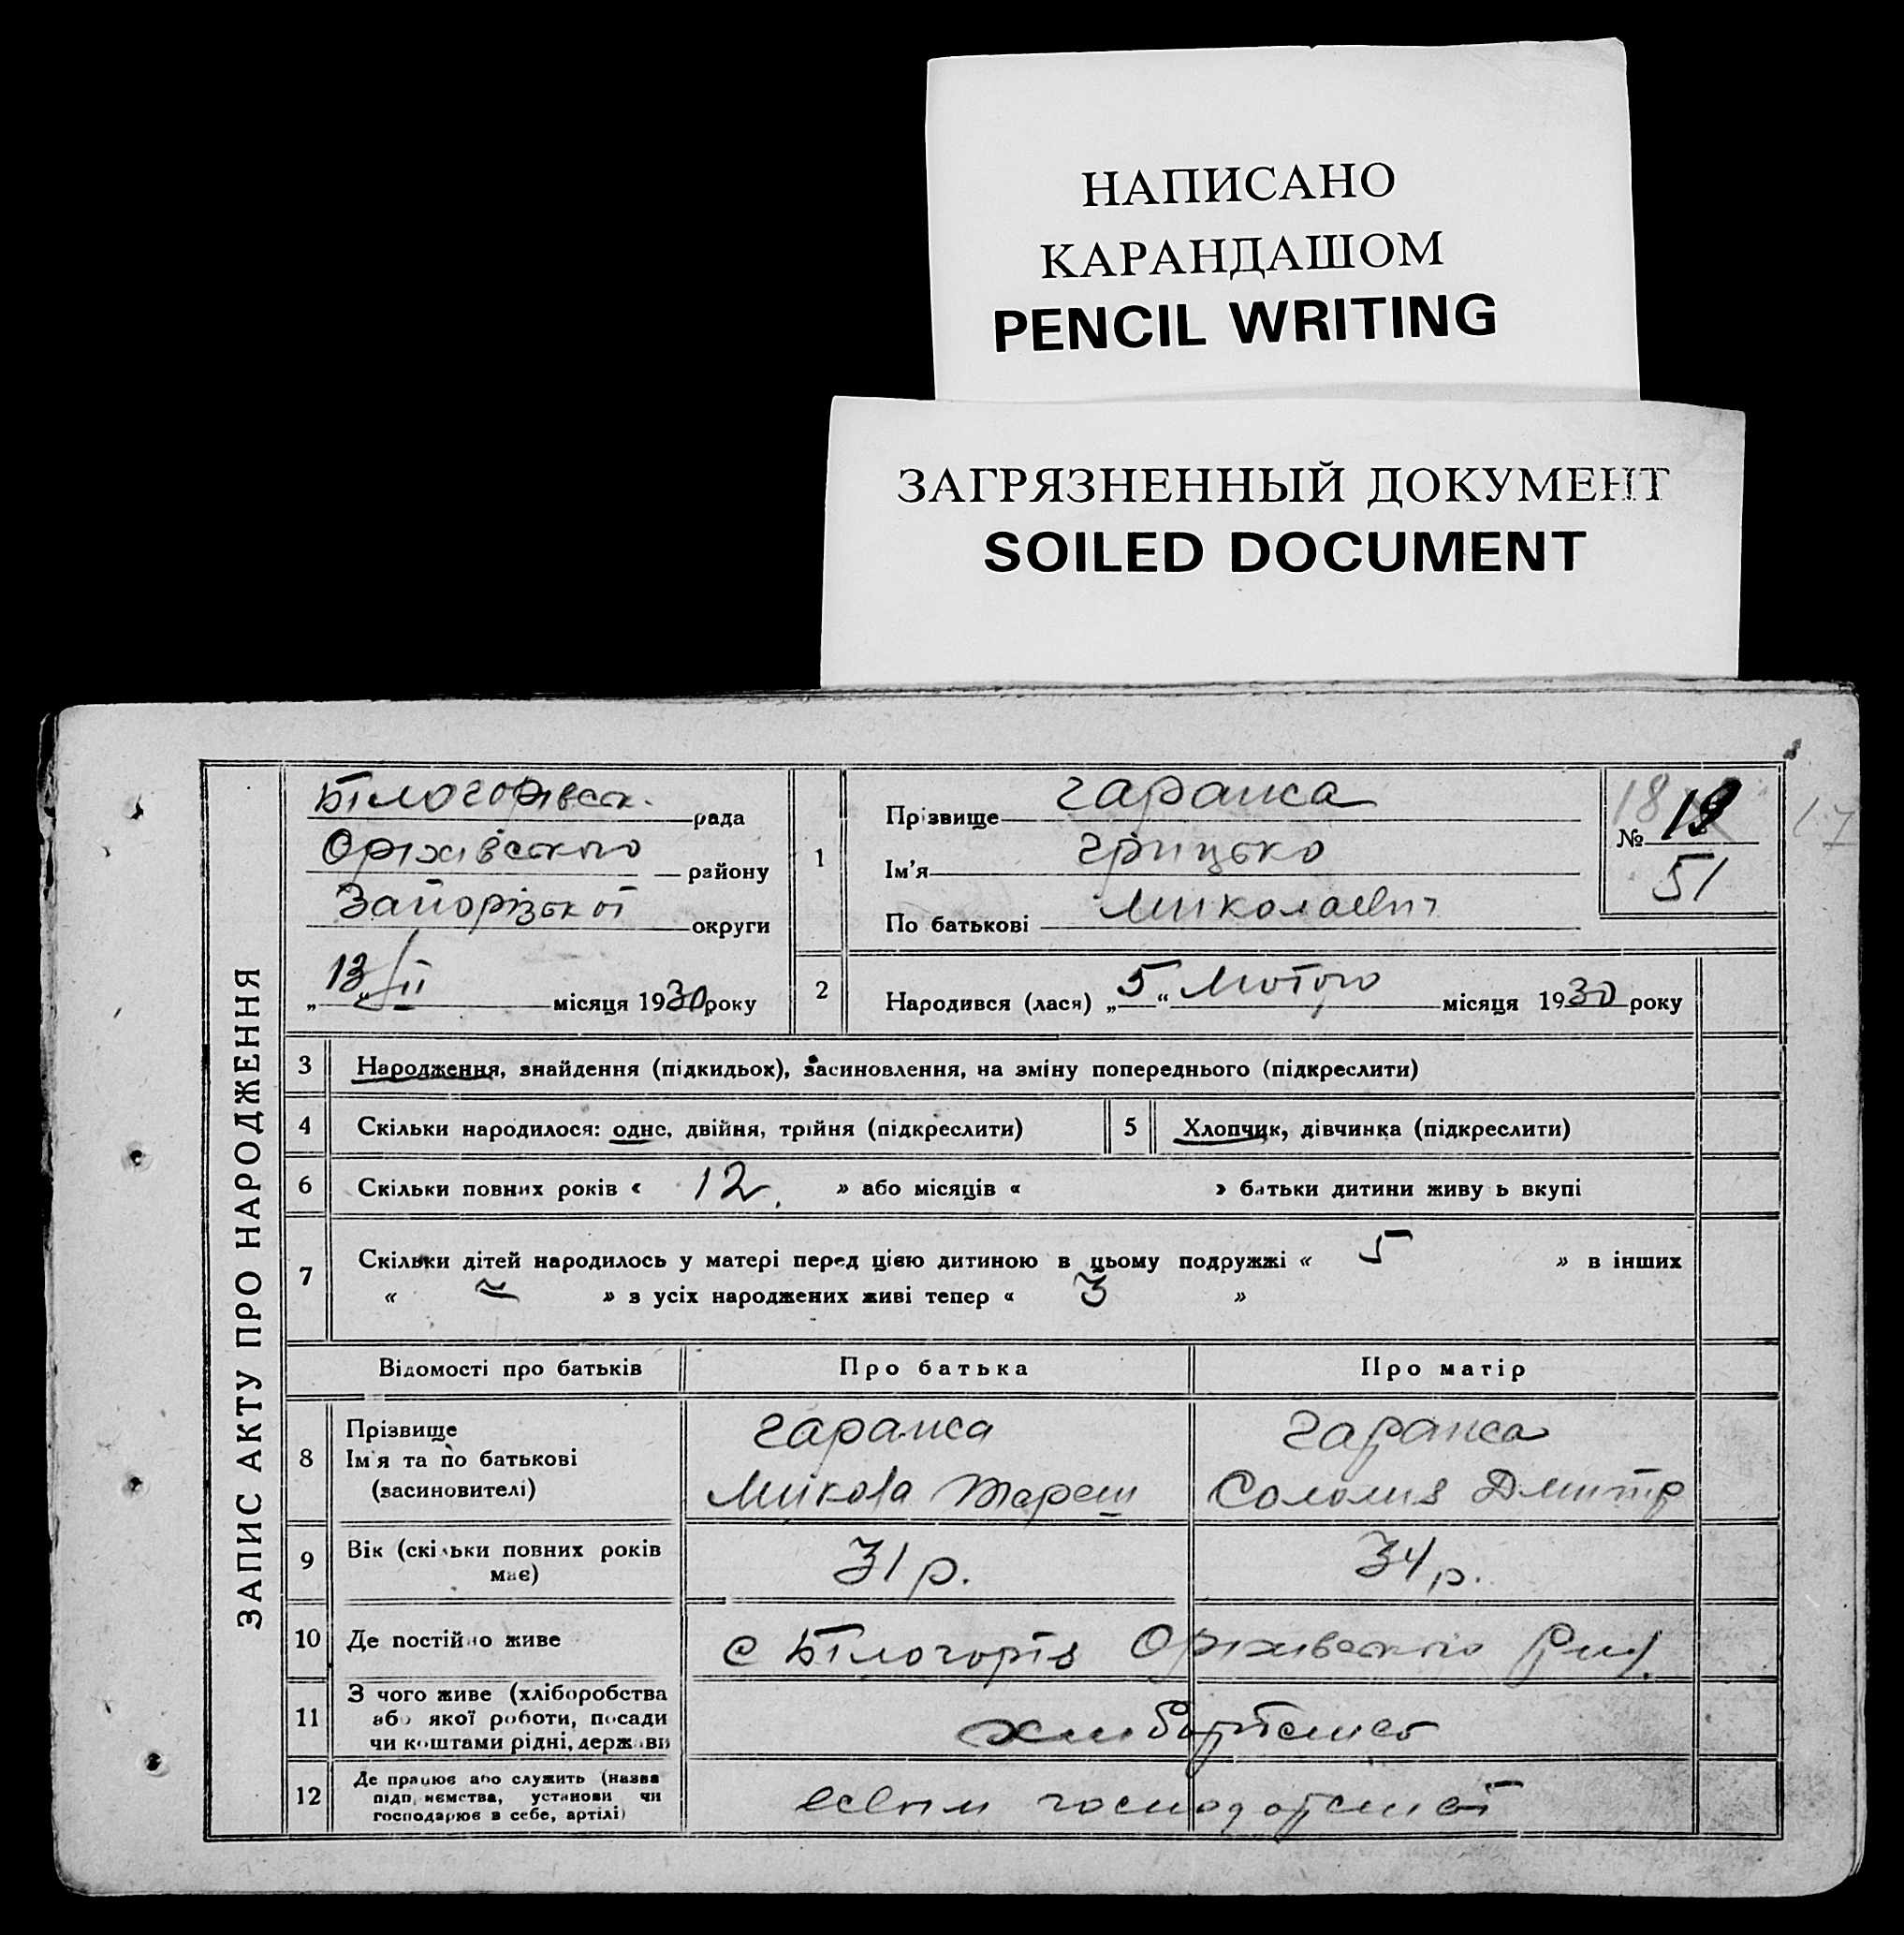 НАПИСАНО
КАРАНДАШОМ
PENCIL WRITING
ЗАГРЯЗНЕННЫЙ ДОКУМЕНТ
SOILED DOCUMENT
ЗАПИС АКТУ ПРО НАРОДЖЕННЯ
Білогорівськ. рада
Оріхівського району
Запорізької округи
„13/II місяця 1930 року
1
Прізвище Гаранса
Ім'я Грицько
По батькові Миколаевич
18 № 19 17
51
2 Народився (лася) „5“ Лютого місяця 1930 року
3 Народження, знайдення (підкидьок), засиновлення, на зміну попереднього (підкреслити)
4 Скільки народилося: одне, двійня, трійня (підкреслити) 5 Хлопчик, дівчинка (підкреслити)
6 Скільки повних років « 12. » або місяців « » батьки дитини живуть вкупі
7 Скільки дітей народилось у матері перед цією дитиною в цьому подружжі « 5 » в інших
« – » з усіх народжених живі тепер « 3 »
Відомості про батьків Про батька Про матір
8 Прізвище Гаранса Гаранса
Ім'я та по батькові
(засиновителі) Микола Тареш Соломия Дмитр
9 Вік (скільки повних років має) 31 р. 34 р.
10 Де постійно живе с Білогорів Оріхівського
11 З чого живе (хліборобства
або якої роботи, посади
чи коштами рідні, держави
12 Де працює або служить (назва
підприємства, установи чи
господарює в себе, артілі)